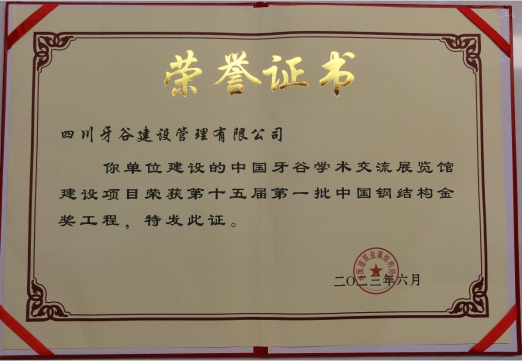 荣誉证书
四川牙谷建设管理有限公司
你单位建设的中国牙谷学术交流展览馆
建设项目荣获第十五届第一批中国钢结构金
奖工程，特发此证。
中国建筑金属结构协会
二〇二三年六月